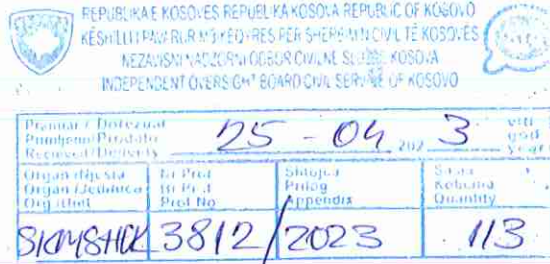 REPUBLIKA E KOSOVËS REPUBLIKA KOSOVA REPUBLIC OF KOSOVO
KËSHILLI PAVARUR MBIKËQYRËS PËR SHËRBIMIN CIVIL TË KOSOVËS
NEZAVISNI NADZORNI ODBOR CIVILNE SLUŽBE KOSOVA
INDEPENDENT OVERSIGHT BOARD CIVIL SERVICE OF KOSOVO
Pranuar / Dorëzuar
Primljeno/Predato
Received/Delivery
25 - 04 202 3
viti
god
year
Organ i Njësia
Organ /Jedinica
Org /Unit
Nr Prot
Br Prot
Prot No
Shtojca
Prilog
Appendix
Sasia
Količina
Quantity
3812/2023
113